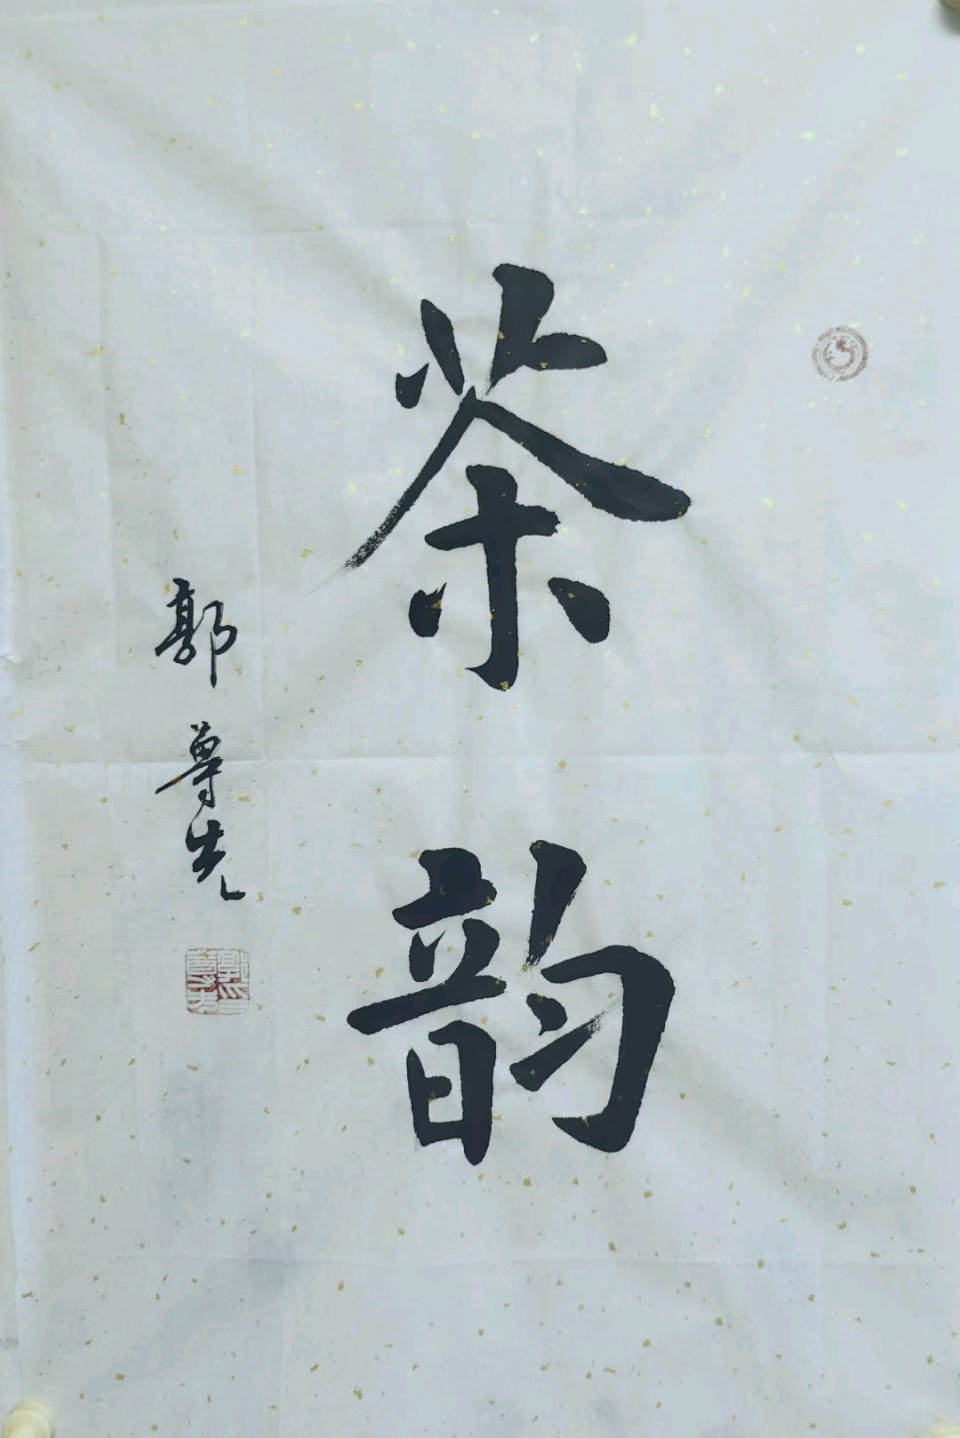 茶韵
郭尊先